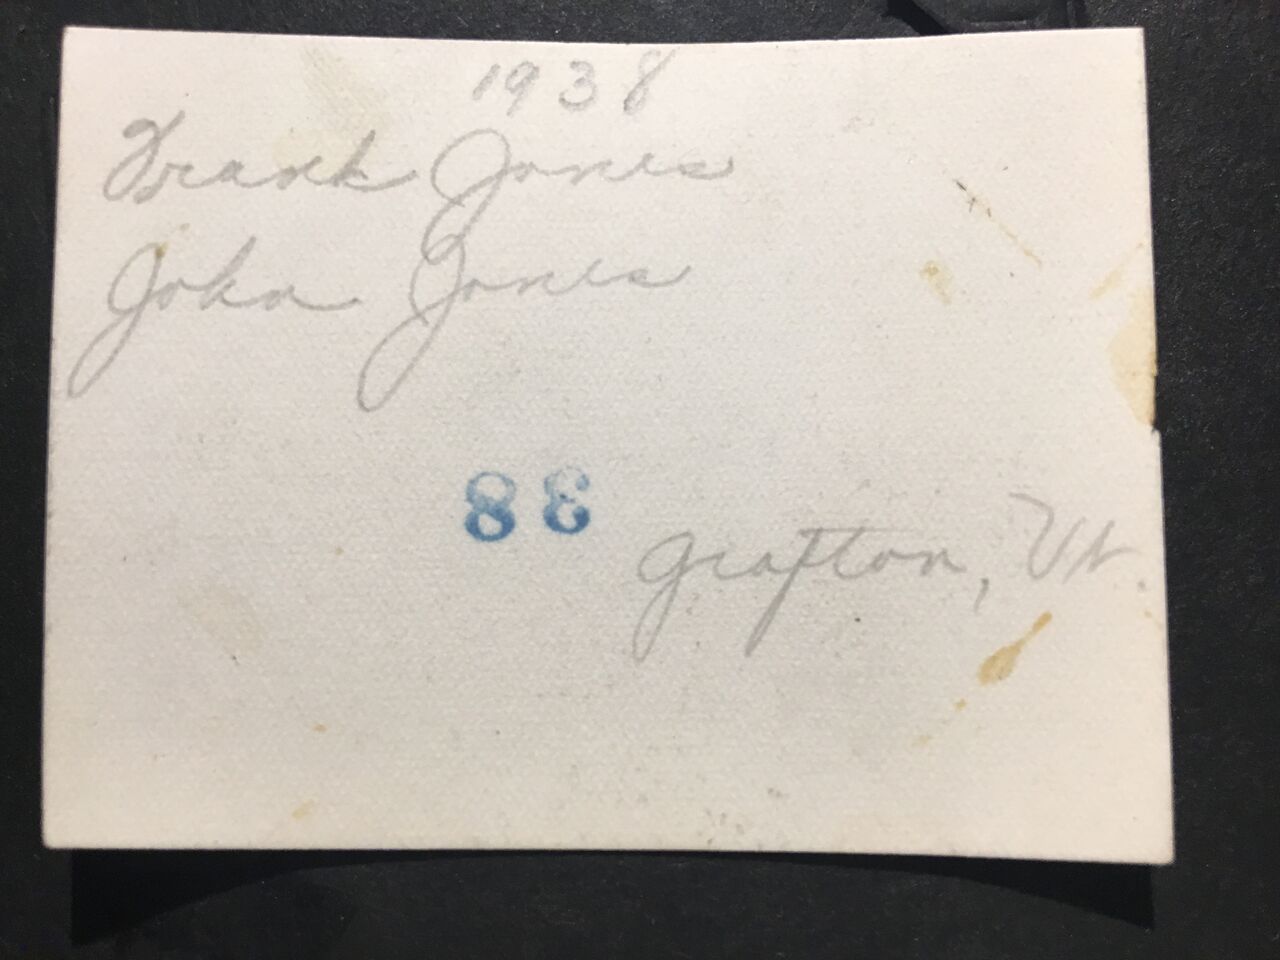 1938
Frank Jones
John Jones
38
Grafton, Vt.